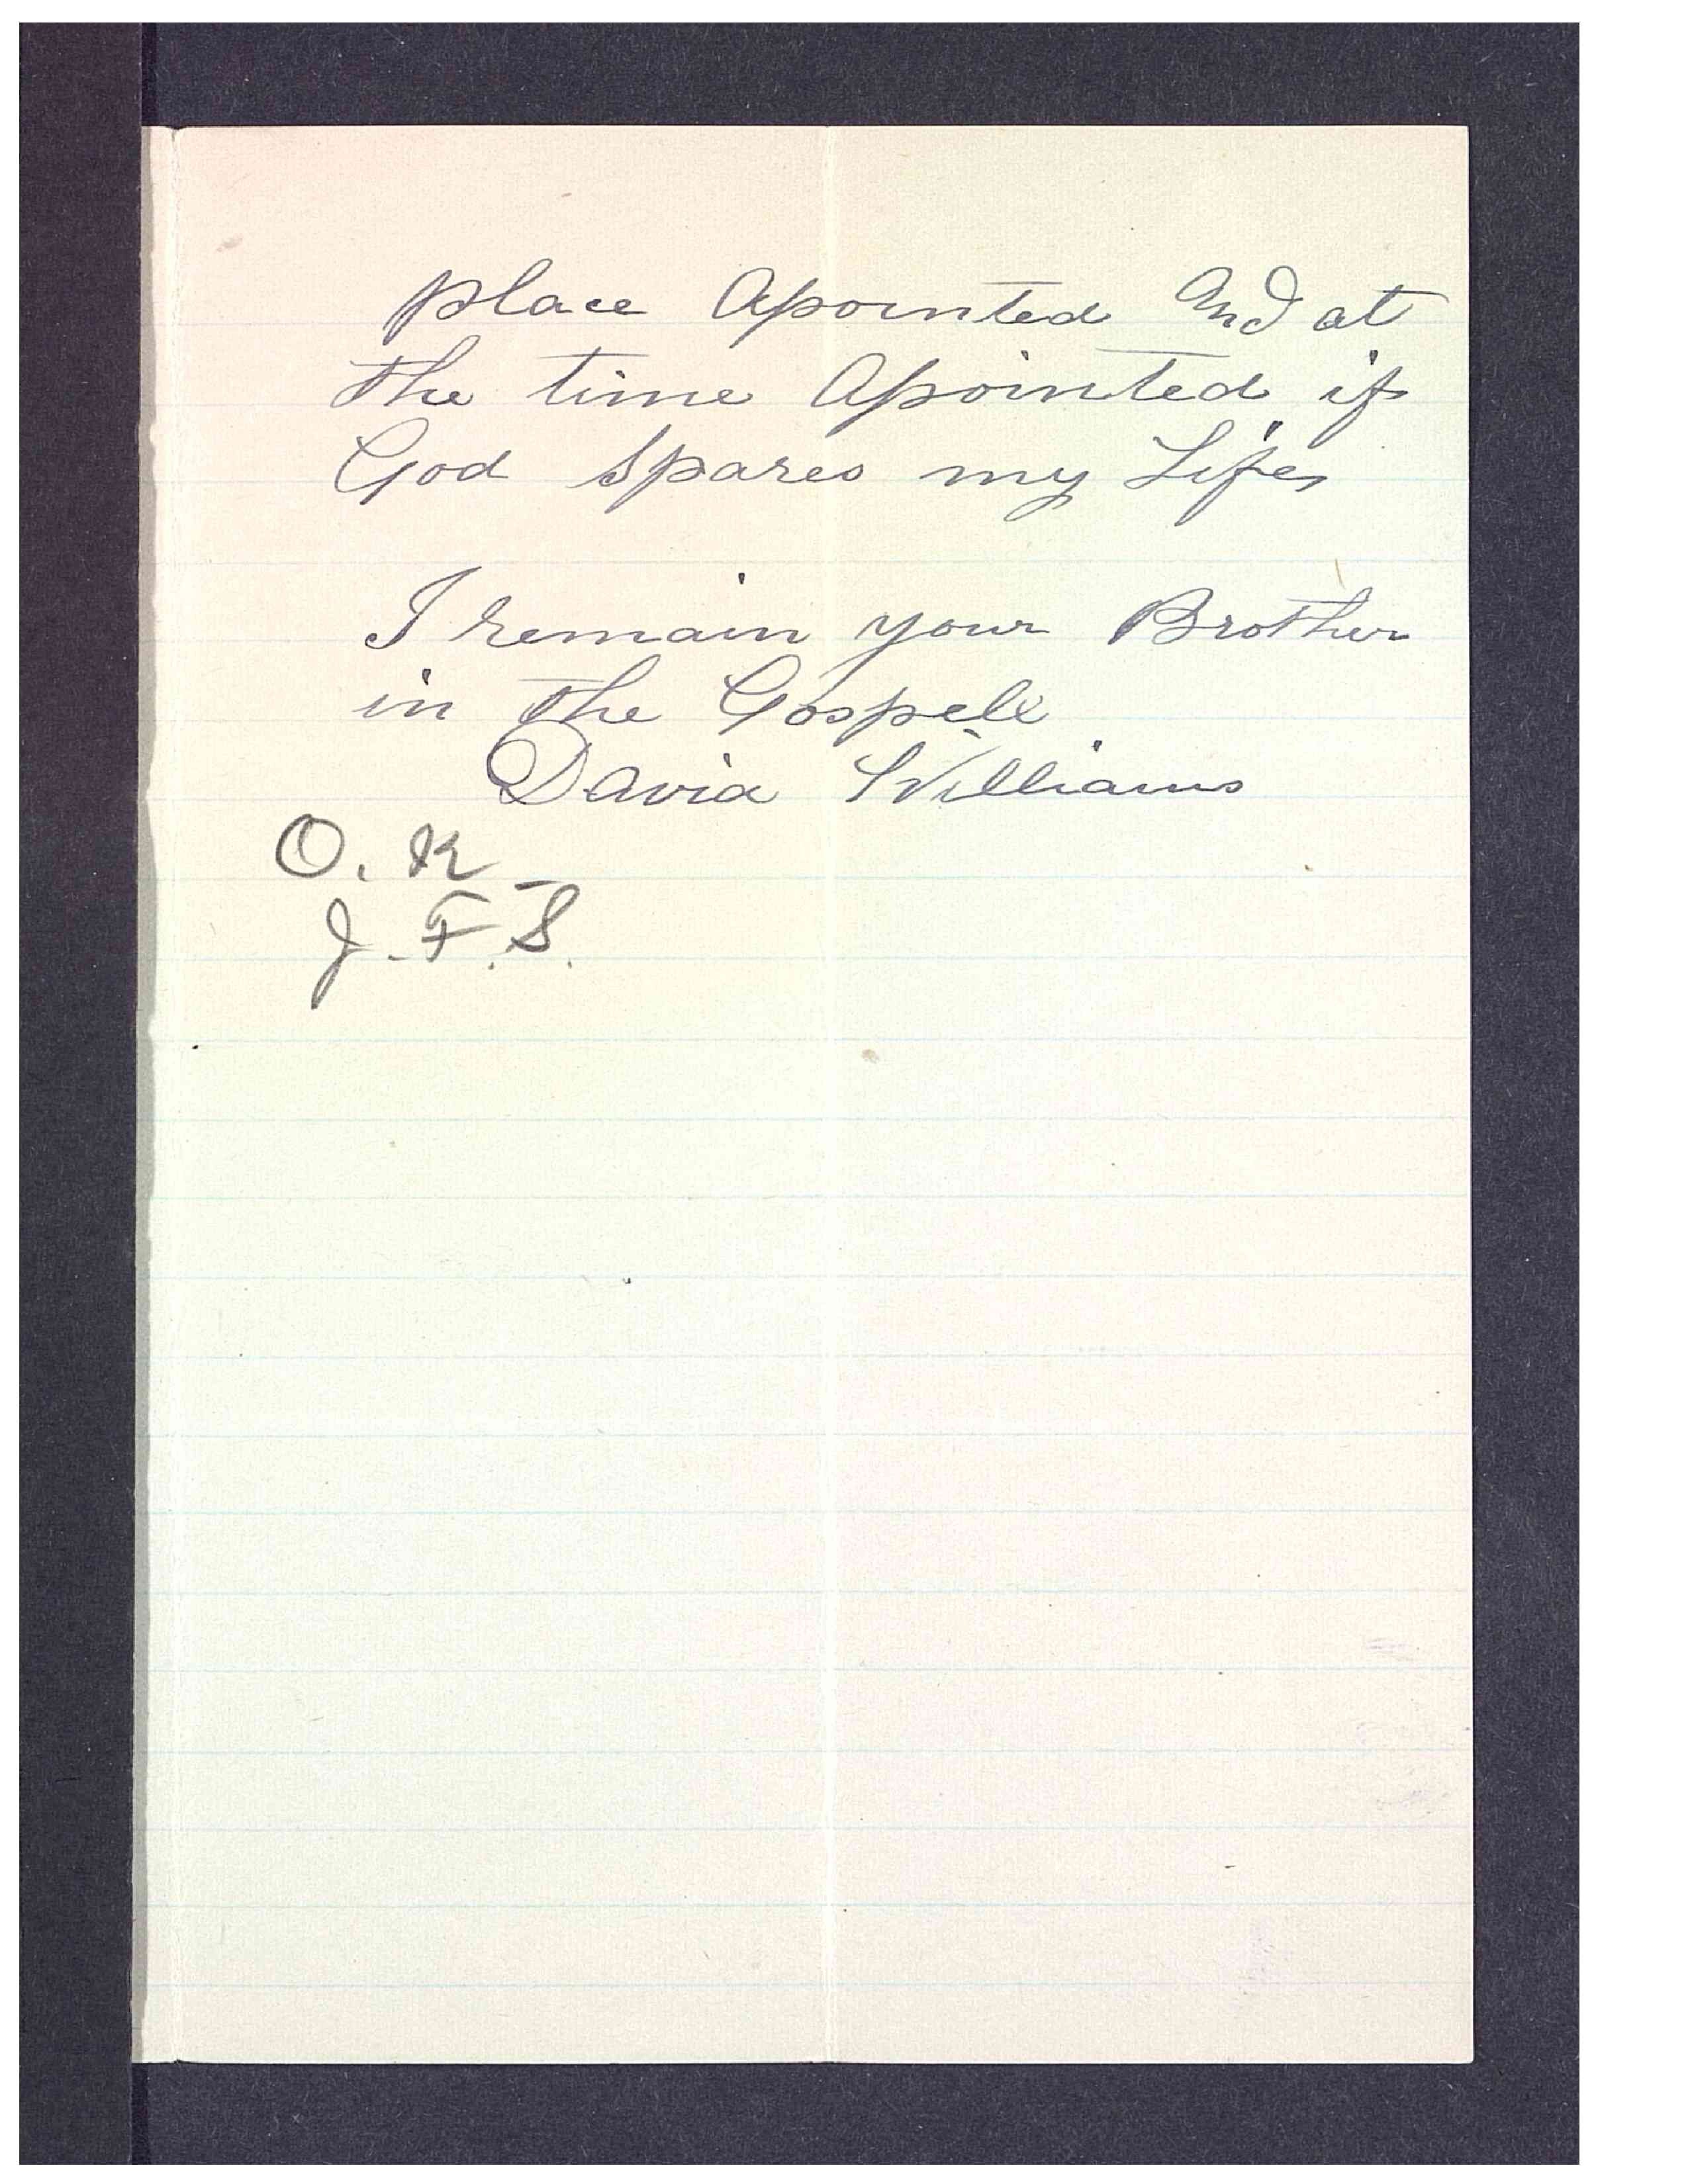 place Apointed And at
the time Apointed if
God Spares my Life,
I remain your Brother
in the Gospell
David Williams
O. K
J. F. S.